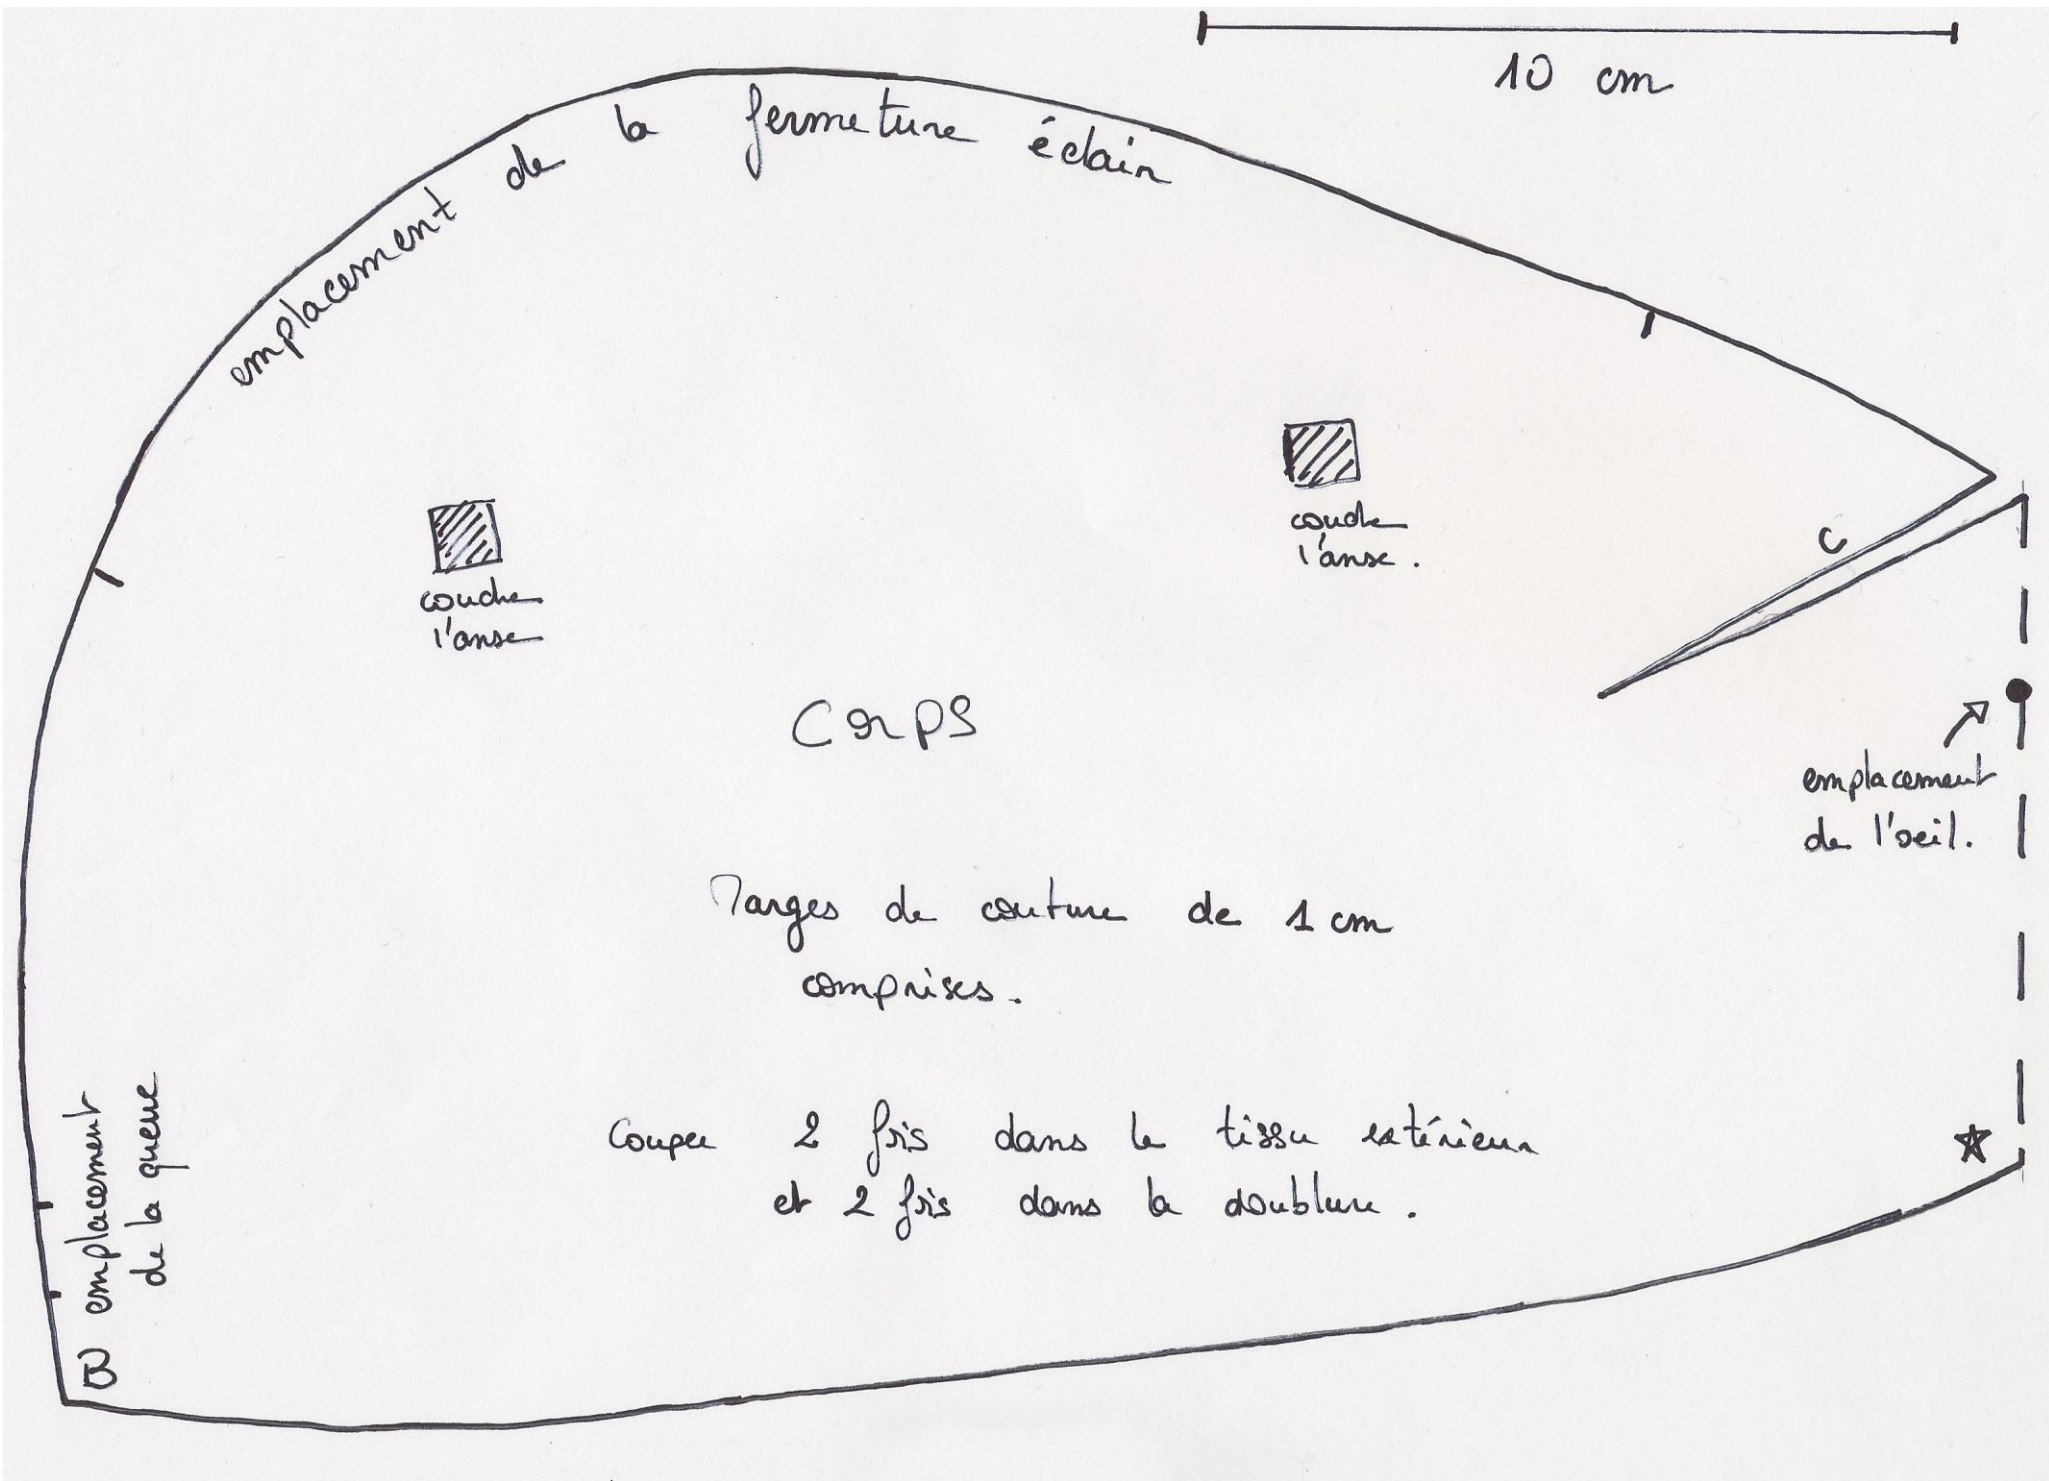 10 cm
emplacement de la fermeture éclair
coudre
l'anse.
coudre
l'anse
C
Corps
emplacement
de l'oeil.
Marges de couture de 1 cm
comprises.
Couper 2 fois dans le tissu extérieur
et 2 fois dans la doublure.
emplacement
de la queue
B